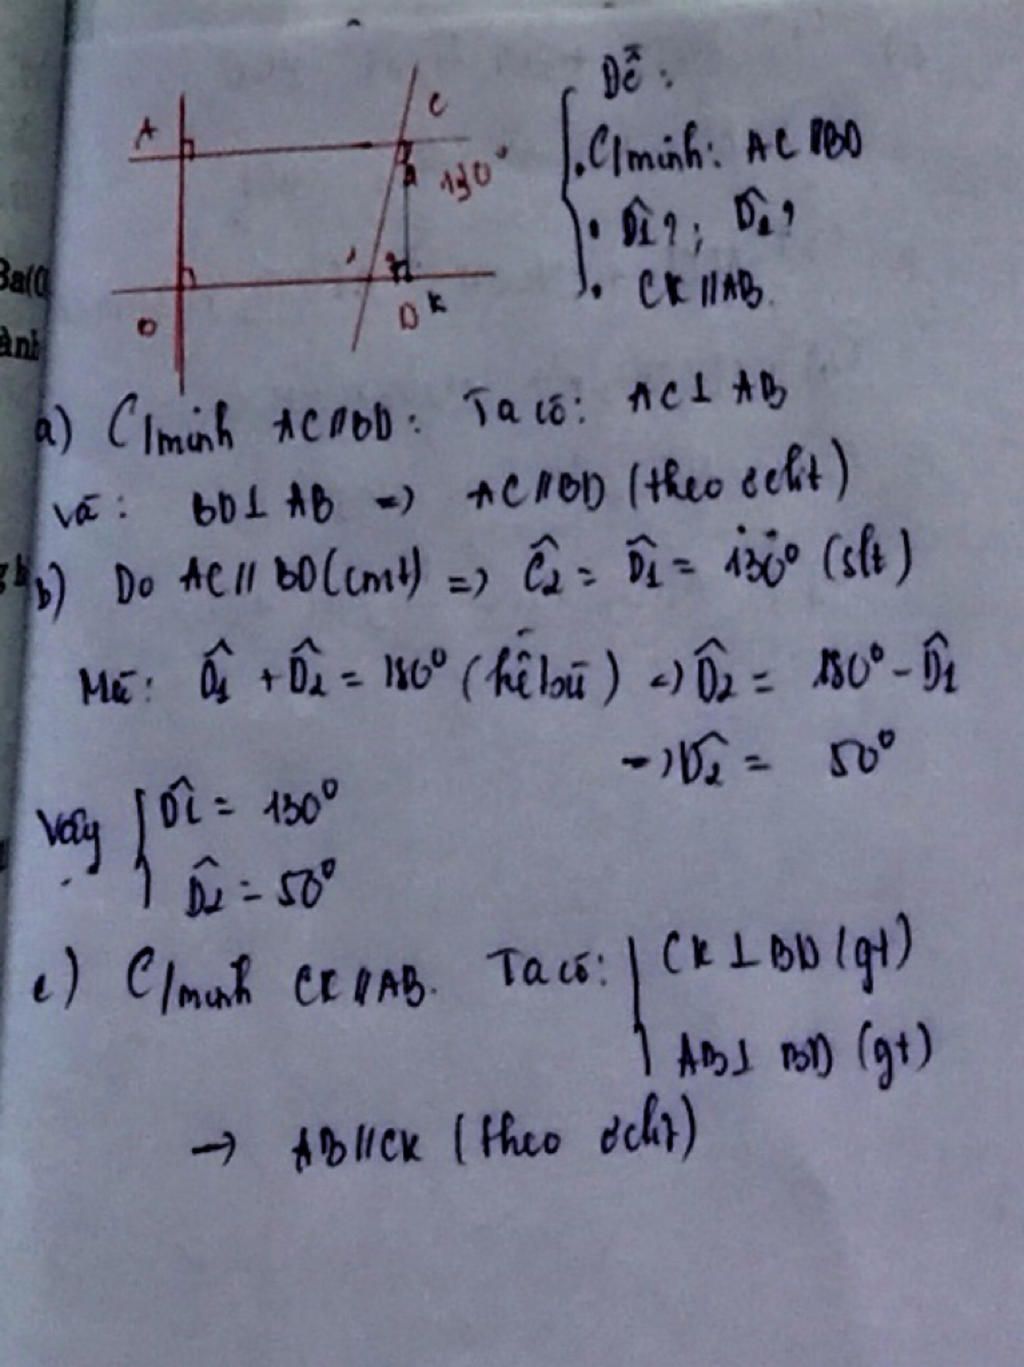 A
C
130°
1
D K
Đề:
. C/minh: AC // BD
. D̂1?; D̂2?
. CK // AB.
a) C/minh AC // BD: Ta có: AC ⊥ AB
Và: BD ⊥ AB => AC // BD (theo
b) Do AC // BD (cmt) => Ĉ2 = D̂1 = 130° (slt)
Mà: D̂1 + D̂2 = 180° (kề bù) => D̂2 = 180° - D̂1
=> D̂2 = 50°
Vậy { D̂1 = 130°
D̂2 = 50°
c) C/minh CK // AB. Ta có: { CK ⊥ BD (gt)
AB ⊥ BD (gt)
→ AB // CK (theo